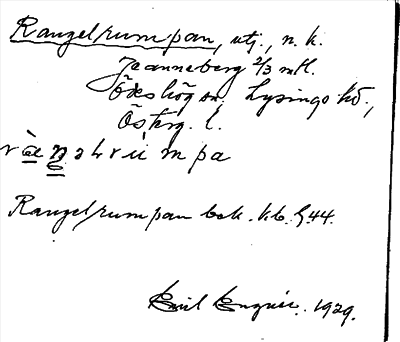 Rangelrumpan, utj., n. k.
Jeanneberg 2/3 mtl.
Ödeshög sn. Lysings hd.,
Österg. l.
Rangelrumpan bek. kb. § 44.
Emil 1929.